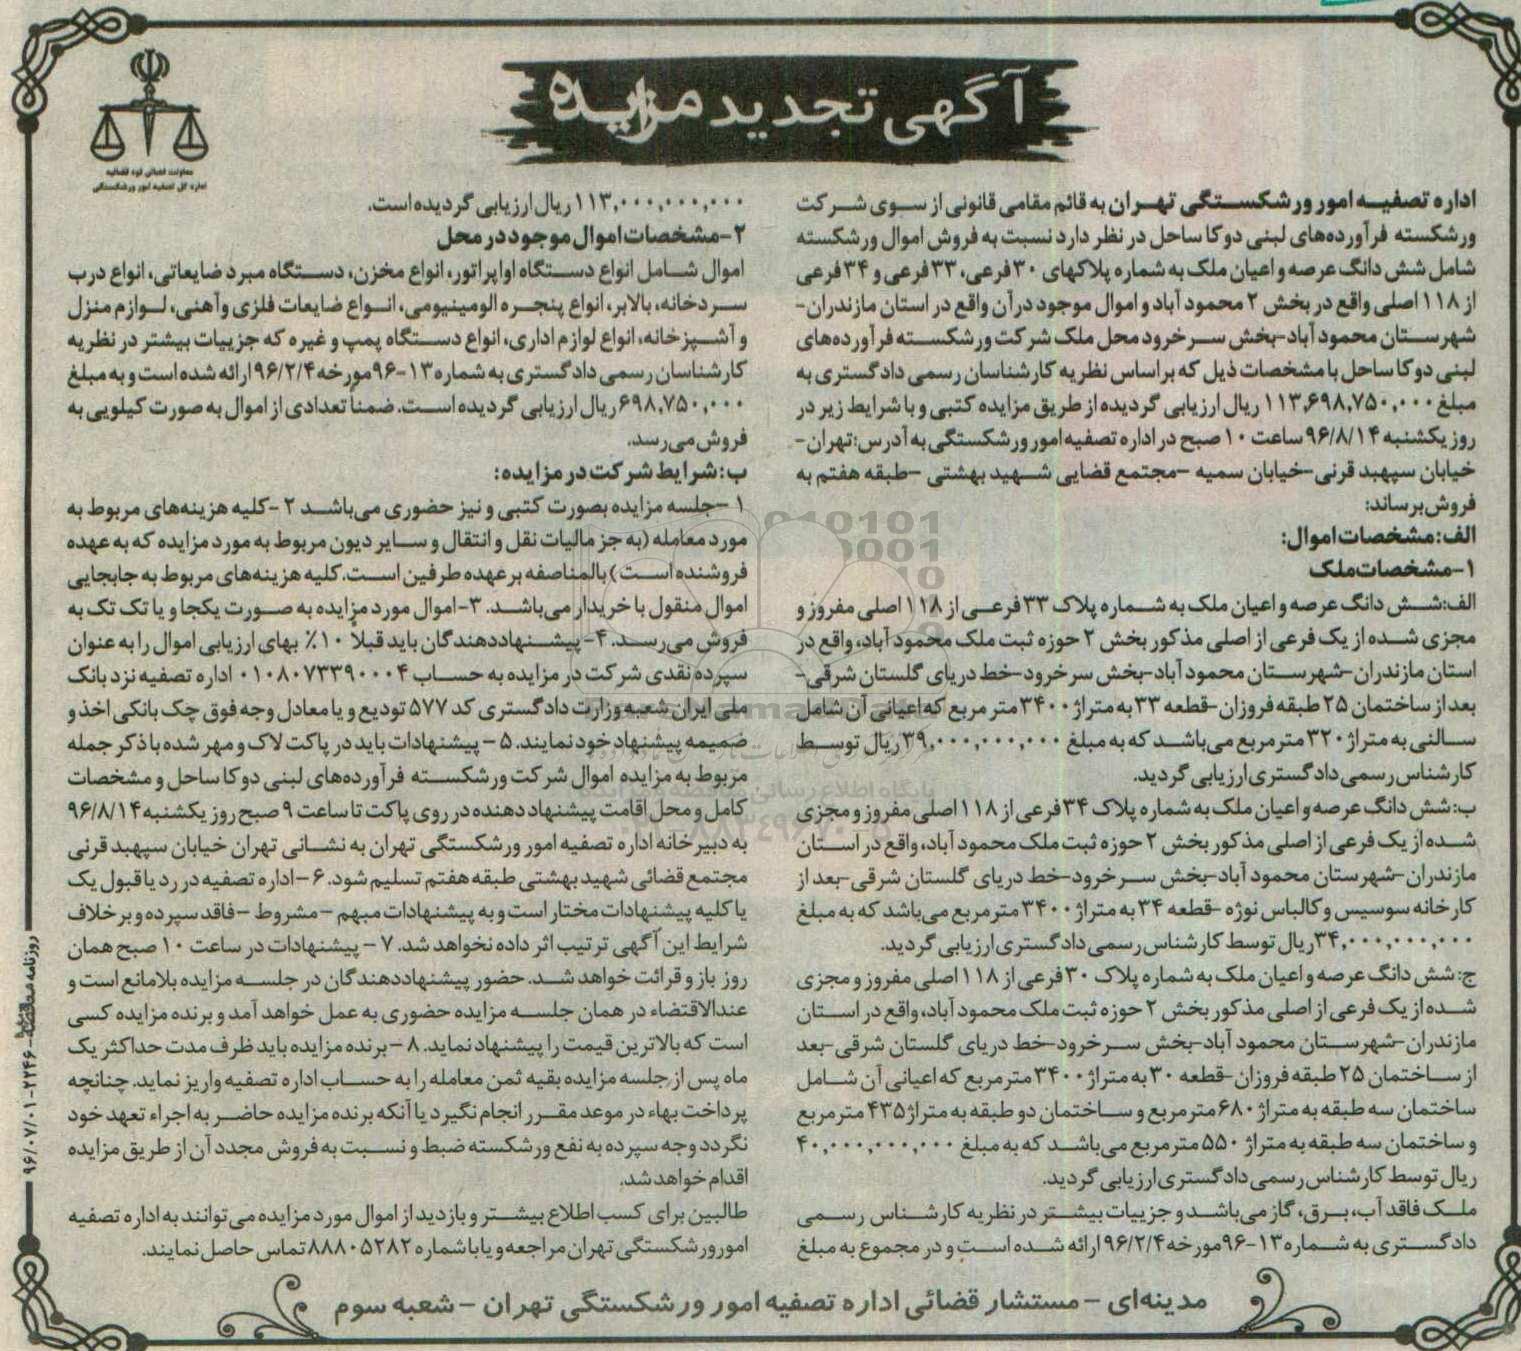 آگهی تجدید مزایده
معاونت قضائی قوه قضائیه
اداره کل تصفیه امور ورشکستگی
اداره تصفیه امور ورشکستگی تهران به قائم مقامی قانونی از سوی شرکت
ورشکسته فرآورده‌های لبنی دوکا ساحل در نظر دارد نسبت به فروش اموال ورشکسته
شامل شش دانگ عرصه و اعیان ملک به شماره پلاکهای ۳۰ فرعی، ۳۳ فرعی و ۳۴ فرعی
از ۱۱۸ اصلی واقع در بخش ۲ محمود آباد و اموال موجود در آن واقع در استان مازندران-
شهرستان محمود آباد-بخش سرخرود محل ملک شرکت ورشکسته فرآورده‌های
لبنی دوکا ساحل با مشخصات ذیل که براساس نظریه کارشناسان رسمی دادگستری به
مبلغ ۱۱۳,۶۹۸,۷۵۰,۰۰۰ ریال ارزیابی گردیده از طریق مزایده کتبی و با شرایط زیر در
روز یکشنبه ۹۶/۸/۱۴ ساعت ۱۰ صبح در اداره تصفیه امور ورشکستگی به آدرس: تهران-
خیابان سپهبد قرنی-خیابان سمیه -مجتمع قضایی شهید بهشتی -طبقه هفتم به
فروش برساند:
الف: مشخصات اموال:
۱-مشخصات ملک
الف: شش دانگ عرصه و اعیان ملک به شماره پلاک ۳۳ فرعی از ۱۱۸ اصلی مفروز و
مجزی شده از یک فرعی از اصلی مذکور بخش ۲ حوزه ثبت ملک محمود آباد، واقع در
استان مازندران-شهرستان محمود آباد-بخش سرخرود-خط دریای گلستان شرقی-
بعد از ساختمان ۲۵ طبقه فروزان-قطعه ۳۳ به متراژ ۳۴۰۰ متر مربع که اعیانی آن شامل
سالنی به متراژ ۳۲۰ مترمربع می‌باشد که به مبلغ ۳۹,۰۰۰,۰۰۰,۰۰۰ ریال توسط
کارشناس رسمی دادگستری ارزیابی گردید.
ب: شش دانگ عرصه و اعیان ملک به شماره پلاک ۳۴ فرعی از ۱۱۸ اصلی مفروز و مجزی
شده از یک فرعی از اصلی مذکور بخش ۲ حوزه ثبت ملک محمود آباد، واقع در استان
مازندران-شهرستان محمود آباد-بخش سرخرود-خط دریای گلستان شرقی-بعد از
کارخانه سوسیس و کالباس نوژه -قطعه ۳۴ به متراژ ۳۴۰۰ مترمربع می‌باشد که به مبلغ
۳۴,۰۰۰,۰۰۰,۰۰۰ ریال توسط کارشناس رسمی دادگستری ارزیابی گردید.
ج: شش دانگ عرصه و اعیان ملک به شماره پلاک ۳۰ فرعی از ۱۱۸ اصلی مفروز و مجزی
شده از یک فرعی از اصلی مذکور بخش ۲ حوزه ثبت ملک محمود آباد، واقع در استان
مازندران-شهرستان محمود آباد-بخش سرخرود-خط دریای گلستان شرقی-بعد
از ساختمان ۲۵ طبقه فروزان-قطعه ۳۰ به متراژ ۳۴۰۰ مترمربع که اعیانی آن شامل
ساختمان سه طبقه به متراژ ۶۸۰ مترمربع و ساختمان دو طبقه به متراژ ۴۳۵ مترمربع
و ساختمان سه طبقه به متراژ ۵۵۰ مترمربع می‌باشد که به مبلغ ۴۰,۰۰۰,۰۰۰,۰۰۰
ریال توسط کارشناس رسمی دادگستری ارزیابی گردید.
ملک فاقد آب، برق، گاز می‌باشد و جزییات بیشتر در نظریه کارشناس رسمی
دادگستری به شماره ۱۳-۹۶ مورخه ۹۶/۲/۴ ارائه شده است و در مجموع به مبلغ
۱۱۳,۰۰۰,۰۰۰,۰۰۰ ریال ارزیابی گردیده است.
۲-مشخصات اموال موجود در محل
اموال شامل انواع دستگاه اواپراتور، انواع مخزن، دستگاه مبرد ضایعاتی، انواع درب
سردخانه، بالابر، انواع پنجره الومینیومی، انواع ضایعات فلزی و آهنی، لوازم منزل
و آشپزخانه، انواع لوازم اداری، انواع دستگاه پمپ و غیره که جزییات بیشتر در نظریه
کارشناسان رسمی دادگستری به شماره ۱۳-۹۶ مورخه ۹۶/۲/۴ ارائه شده است و به مبلغ
۶۹۸,۷۵۰,۰۰۰ ریال ارزیابی گردیده است. ضمناً تعدادی از اموال به صورت کیلویی به
فروش می‌رسد.
ب: شرایط شرکت در مزایده:
۱ -جلسه مزایده بصورت کتبی و نیز حضوری می‌باشد ۲ -کلیه هزینه‌های مربوط به
مورد معامله (به جز مالیات نقل و انتقال و سایر دیون مربوط به مورد مزایده که به عهده
فروشنده است) بالمناصفه بر عهده طرفین است. کلیه هزینه‌های مربوط به جابجایی
اموال منقول با خریدار می‌باشد. ۳-اموال مورد مزایده به صورت یکجا و یا تک تک به
فروش می‌رسد. ۴- پیشنهاددهندگان باید قبلاً ۱۰٪ بهای ارزیابی اموال را به عنوان
سپرده نقدی شرکت در مزایده به حساب ۰۱۰۸۰۷۳۳۹۰۰۰۴ اداره تصفیه نزد بانک
ملی ایران شعبه وزارت دادگستری کد ۵۷۷ تودیع و یا معادل وجه فوق چک بانکی اخذ و
ضمیمه پیشنهاد خود نمایند. ۵ - پیشنهادات باید در پاکت لاک و مهر شده با ذکر جمله
مربوط به مزایده اموال شرکت ورشکسته فرآورده‌های لبنی دوکا ساحل و مشخصات
کامل و محل اقامت پیشنهاد دهنده در روی پاکت تا ساعت ۹ صبح روز یکشنبه ۹۶/۸/۱۴
به دبیرخانه اداره تصفیه امور ورشکستگی تهران به نشانی تهران خیابان سپهبد قرنی
مجتمع قضائی شهید بهشتی طبقه هفتم تسلیم شود. ۶ -اداره تصفیه در رد یا قبول یک
یا کلیه پیشنهادات مختار است و به پیشنهادات مبهم -مشروط -فاقد سپرده و برخلاف
شرایط این آگهی ترتیب اثر داده نخواهد شد. ۷ - پیشنهادات در ساعت ۱۰ صبح همان
روز باز و قرائت خواهد شد. حضور پیشنهاددهندگان در جلسه مزایده بلامانع است و
عندالاقتضاء در همان جلسه مزایده حضوری به عمل خواهد آمد و برنده مزایده کسی
است که بالاترین قیمت را پیشنهاد نماید. ۸ -برنده مزایده باید ظرف مدت حداکثر یک
ماه پس از جلسه مزایده بقیه ثمن معامله را به حساب اداره تصفیه واریز نماید. چنانچه
پرداخت بهاء در موعد مقرر انجام نگیرد یا آنکه برنده مزایده حاضر به اجراء تعهد خود
نگردد وجه سپرده به نفع ورشکسته ضبط و نسبت به فروش مجدد آن از طریق مزایده
اقدام خواهد شد.
طالبین برای کسب اطلاع بیشتر و بازدید از اموال مورد مزایده می‌توانند به اداره تصفیه
امور ورشکستگی تهران مراجعه و یا با شماره ۸۸۸۰۵۲۸۲ تماس حاصل نمایند.
مدینه‌ای - مستشار قضائی اداره تصفیه امور ورشکستگی تهران - شعبه سوم
۹۶/۰۷/۰۱-۲۲۴۶-روزنامه